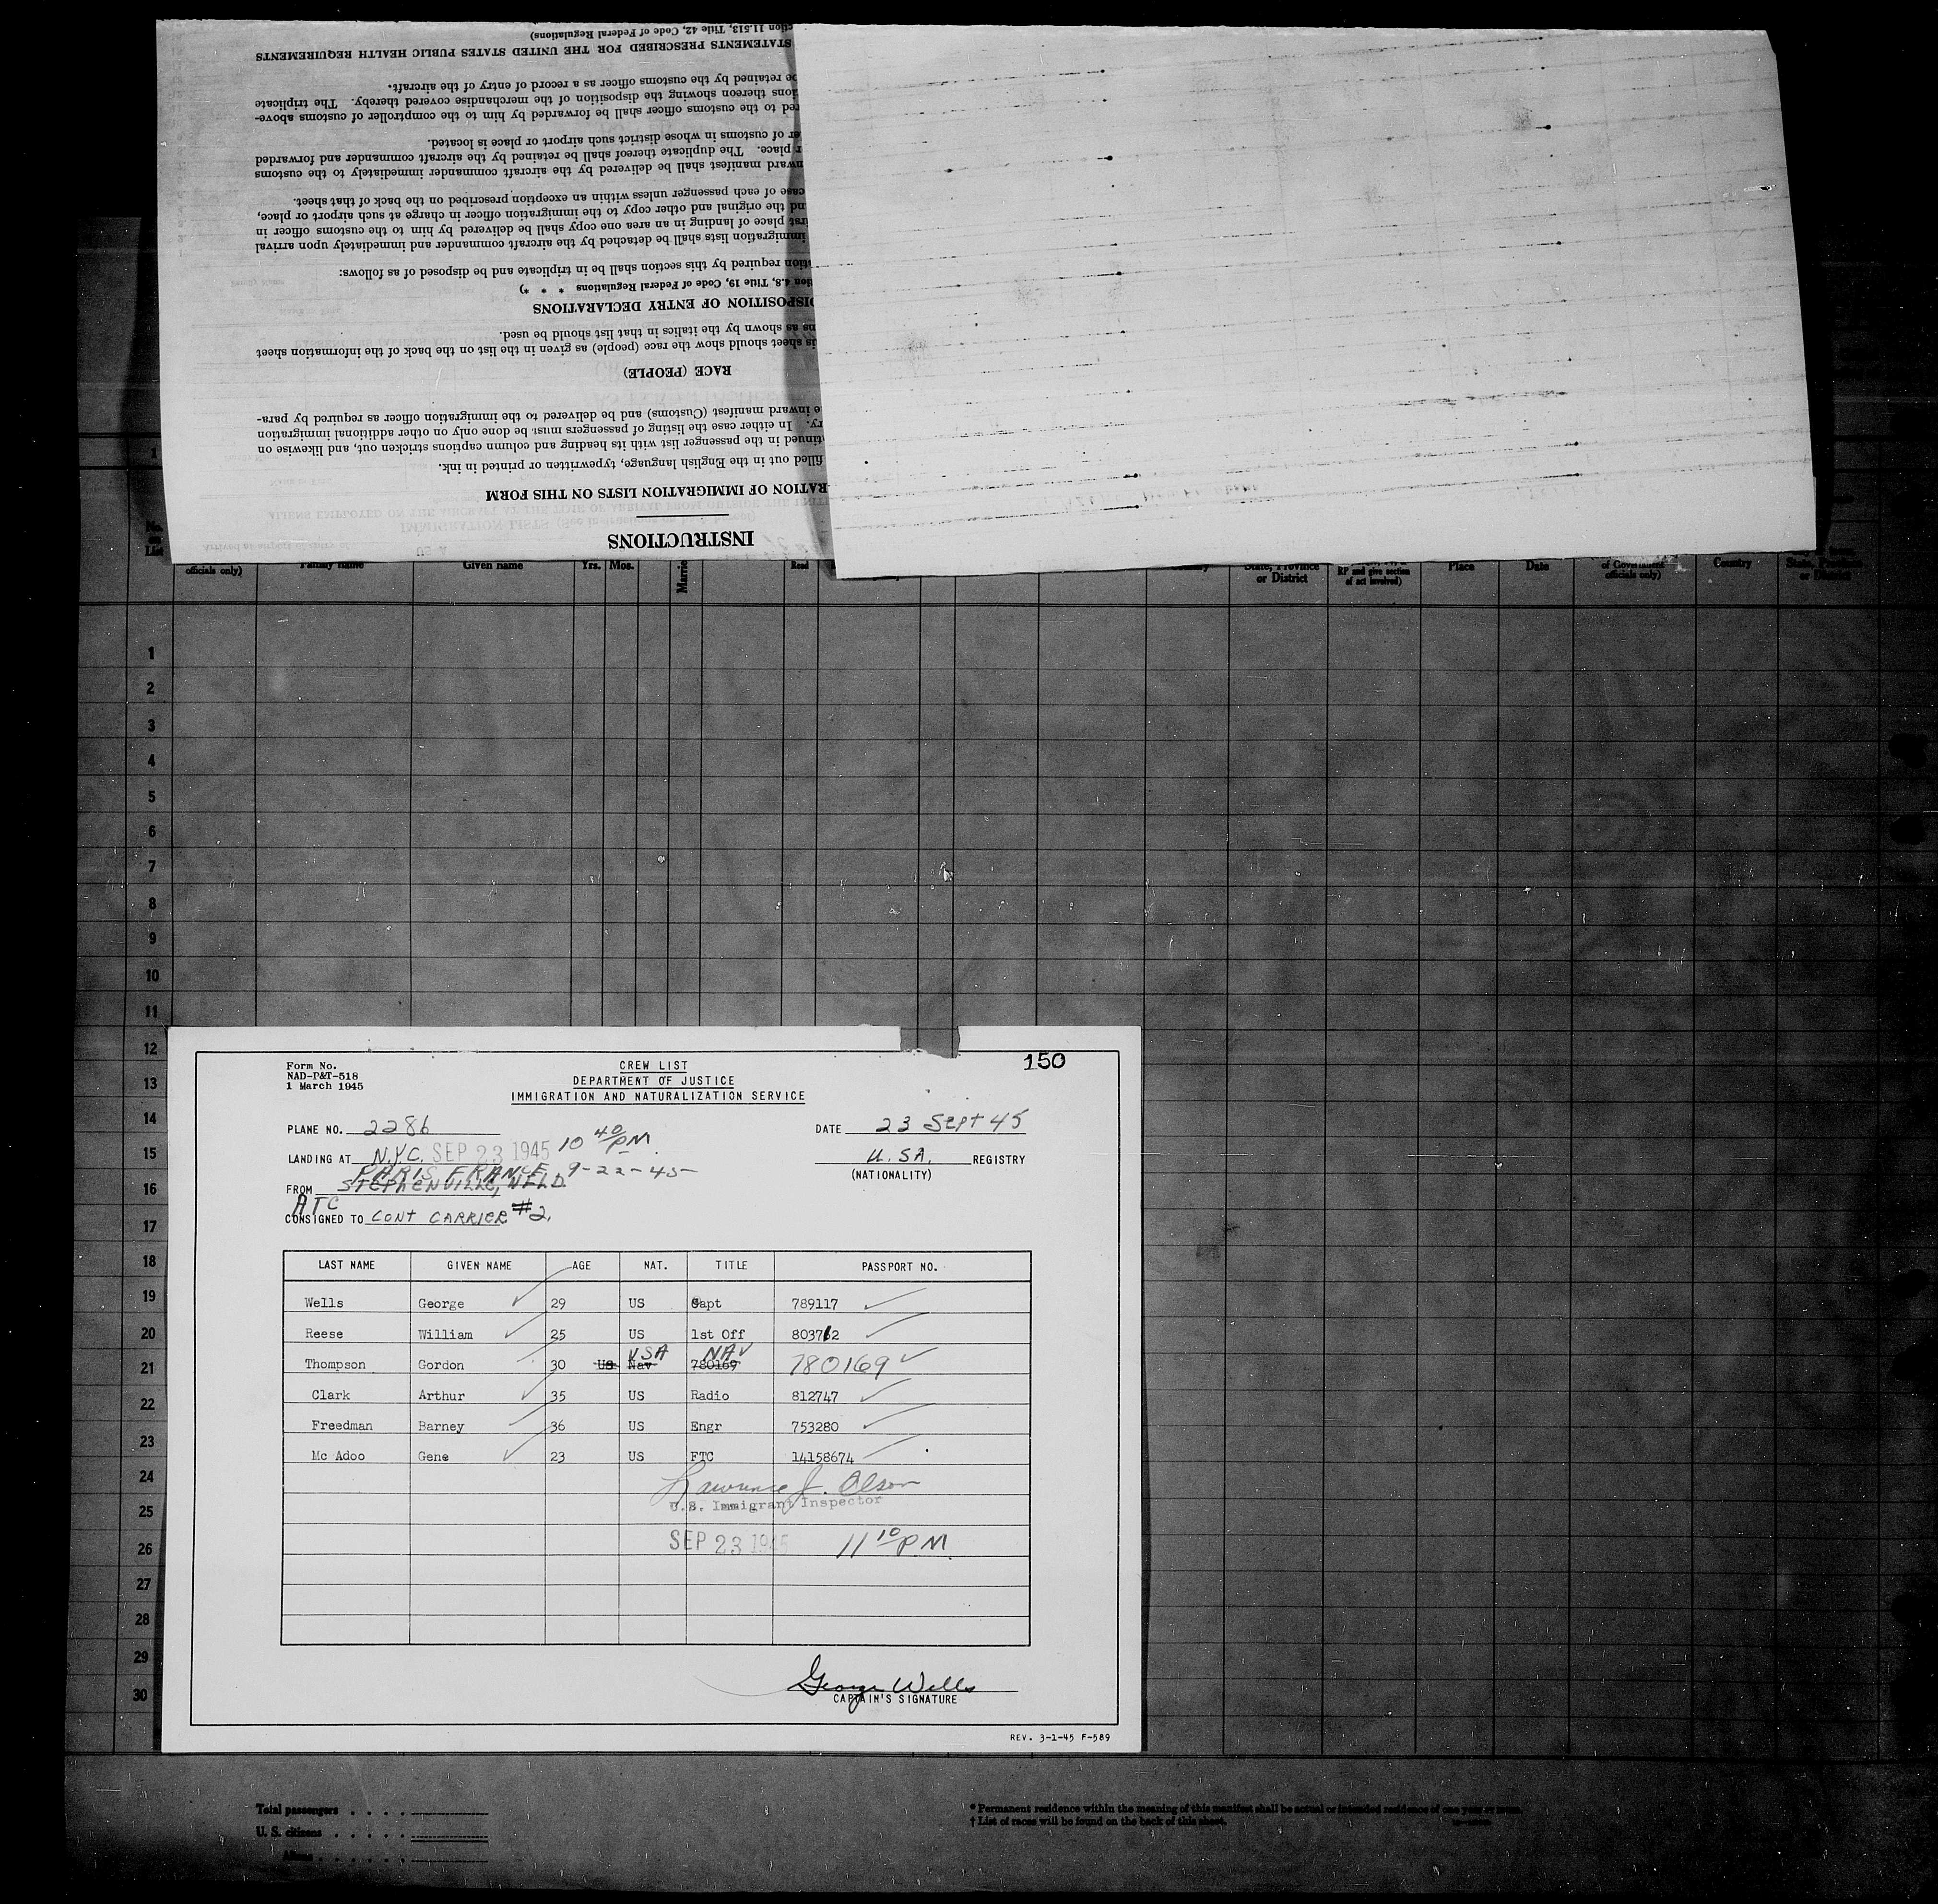 ction 11.513, Title 42, Code of Federal Regulations)
STATEMENTS PRESCRIBED FOR THE UNITED STATES PUBLIC HEALTH REQUIREMENTS
be retained by the customs officer as a record of entry of the aircraft.
ions thereon showing the disposition of the merchandise covered thereby. The triplicate
red to the customs officer shall be forwarded by him to the comptroller of customs above-
er of customs in whose district such airport or place is located.
r place. The duplicate thereof shall be retained by the aircraft commander and forwarded
nward manifest shall be delivered by the aircraft commander immediately to the customs
case of each passenger unless within an exception prescribed on the back of that sheet.
nd the original and other copy to the immigration officer in charge at such airport or place,
rst place of landing in an area one copy shall be delivered by him to the customs officer in
immigration lists shall be detached by the aircraft commander and immediately upon arrival
ation required by this section shall be in triplicate and be disposed of as follows:
tion 4.8, Title 19, Code of Federal Regulations * * *)
DISPOSITION OF ENTRY DECLARATIONS
ns as shown by the italics in that list should be used.
is sheet should show the race (people) as given in the list on the back of the information sheet
RACE (PEOPLE)
e inward manifest (Customs) and be delivered to the immigration officer as required by para-
ry. In either case the listing of passengers must be done only on other additional immigration
tinued in the passenger list with its heading and column captions stricken out, and likewise on
filled out in the English language, typewritten or printed in ink.
RATION OF IMMIGRATION LISTS ON THIS FORM
INSTRUCTIONS
No. on List
officials only) Family name Given name Yrs. Mos. Married Read State, Province or District RP and give section of act involved) Place Date of Government officials only) Country State, Province or District
1
2
3
4
5
6
7
8
9
10
11
12
13
14
15
16
17
18
19
20
21
22
23
24
25
26
27
28
29
30
Form No.
NAD-P&T-518
1 March 1945
CREW LIST
DEPARTMENT OF JUSTICE
IMMIGRATION AND NATURALIZATION SERVICE
150
PLANE NO. 2286
DATE 23 Sept 45
LANDING AT N.Y.C. SEP 23 1945 10 40 PM
U.S.A. REGISTRY
(NATIONALITY)
PARIS FRANCE 9-22-45
FROM STEPHENVILLE, NFLD
ATC
CONSIGNED TO CONT CARRIER #2.
LAST NAME GIVEN NAME AGE NAT. TITLE PASSPORT NO.
Wells George 29 US Capt 789117
Reese William 25 US 1st Off 803712
USA NAV
Thompson Gordon 30 US Nav 780169 780169
Clark Arthur 35 US Radio 812747
Freedman Barney 36 US Engr 753280
Mc Adoo Gene 23 US FTC 14158674
Lawrence J. Olson
U.S. Immigrant Inspector
SEP 23 1945 11 10 PM
George Wells
CAPTAIN'S SIGNATURE
REV. 3-1-45 F-589
Total passengers
U. S. citizens
Aliens
* Permanent residence within the meaning of this manifest shall be actual or intended residence of one year or more.
† List of races will be found on the back of this sheet.